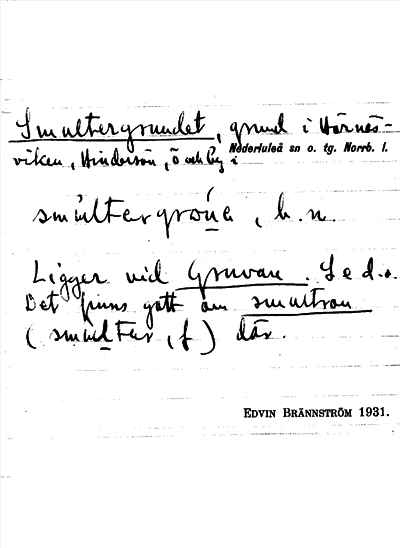 Smultergrundet, grund i Härnäs-
viken, Hindersön, ö och by i Nederluleå sn o. tg. Norrb. l.
smùltergrone, b. n.
Ligger vid Gruvan. Se d.o.
Det finns gott om smultron
(smulter, f) där.
EDVIN BRÄNNSTRÖM 1931.